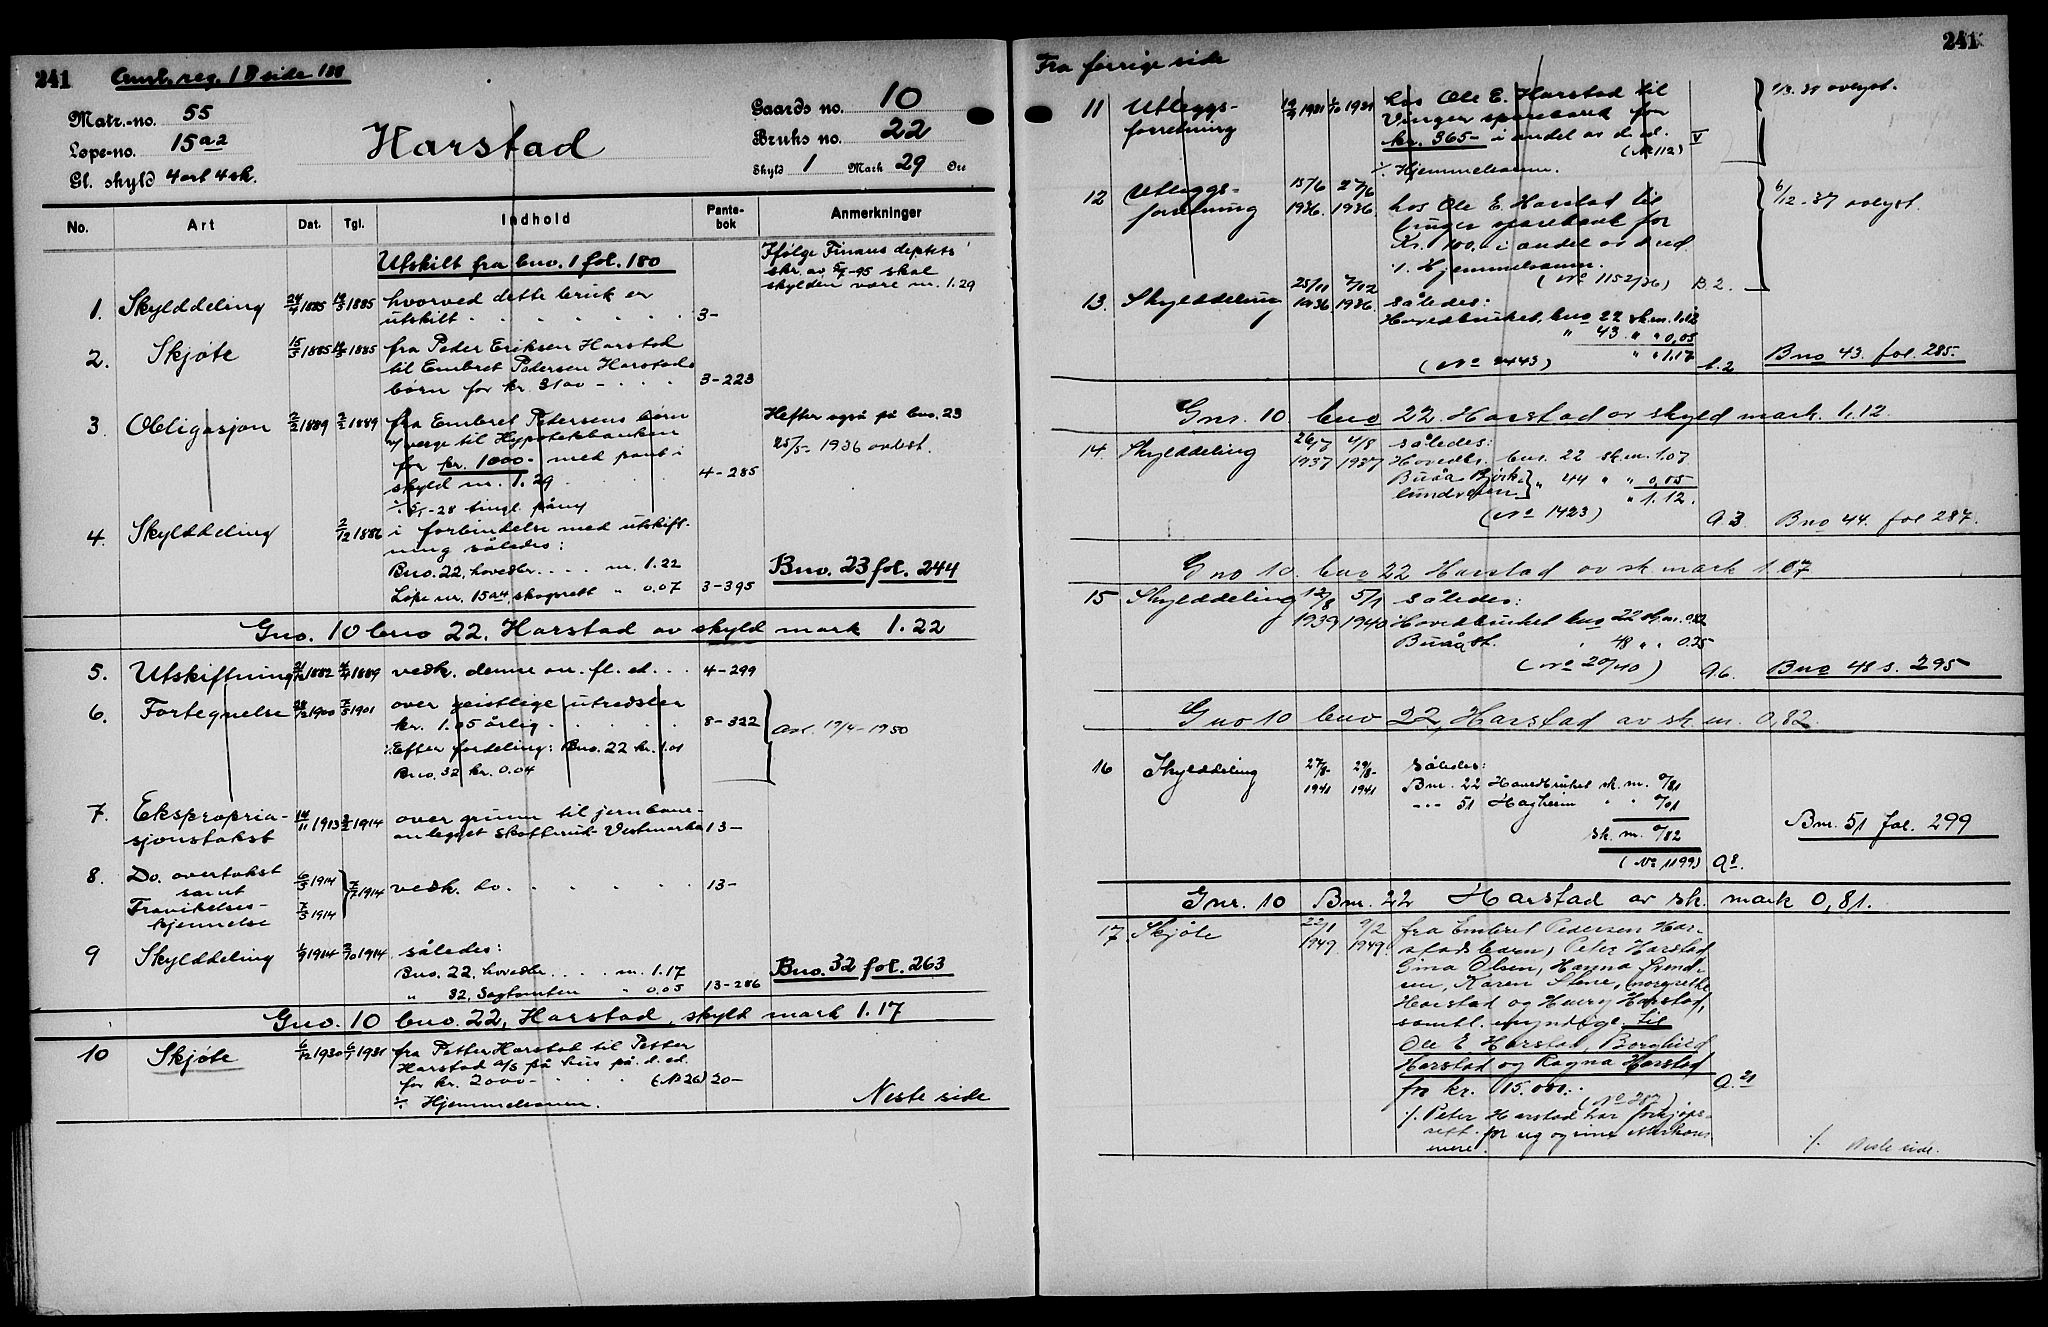 241
Matr.-no. 55
Løpe-no. 15a2
Gl. skyld 4 ort 4 sk.
Harstad
Gaards no. 10
Bruks no. 22
Skyld 1 Mark 29 Øre
No. Art Dat. Tgl. Indhold Pante-bok Anmerkninger
Utskilt fra bno. 1 fol. 180
Ifølge Finans deptets
skr. av -95 skal
skylden være m. 1.29
1. Skylddeling 1885 1885 hvorved dette bruk er
utskilt 3-
2. Skjøte 15/5 1885 1885 fra Peder Eriksen Harstad
til Embret Pedersen Harstads
børn for kr. 3100 - 3-223
3. Obligasjon 2/2 1889 2/2 1889 fra Embret Pedersens børn
v/verge til Hypotekbanken
for kr. 1000.- med pant i
skyld m. 1.29 4-285
-28 tingl. påny
Hefter også på bno. 23
25/5-1936 avlest.
4. Skylddeling 2/12 1886 i forbindelse med utskift-
ning således:
Bno. 22, hovedbr. m. 1.22
Løpe nr. 15a4, skogrett " 0.07 3-395
Bno. 23 fol. 244
Gno. 10 bno 22, Harstad av skyld mark 1.22
5. Utskiftning 1882 1889 vedk. denne m. fl. ed. 4-299
6. Fortegnelse 28/12 1900 1901 over geistlige utredsler
kr. 1.05 årlig. 8-322
Efter fordeling: Bno. 22 kr. 1.01
Bno. 32 kr. 0.04
Avl. 19/4-1950
7. Ekspropria-
sjonstakst 14/11 1913 1914 over grunn til jernbane-
anlegget Skotterud-Vestmarka 13-
8. Do. overtakst
samt
Fravikelses-
kjennelse 6/3 1914
7/3 1914 1914 vedk. do. 13-
9 Skylddeling 1914 1914 således:
Bno. 22, hovedbr. m. 1.17
" 32, Sagtomten " 0.05 13-286
Bno. 32 fol. 263
Gno. 10 bno. 22, Harstad, skyld mark 1.17
10 Skjøte 6/12 1930 6/1 1931 fra Petter Harstad til Petter
Harstad A/S på hus på d. ed.
for kr. 2000- (No 26) 20-
Hjemmelsanm.
Neste side
Fra forrige side
241
11 Utleggs-
forretning 1931 1931 hos Ole E. Harstad til
Vinger sparebank for
kr. 365- i andel av d. ed.
(No 112) V
Hjemmelsanm.
avlyst.
12 Utleggs-
forretning 15/6 1936. 27/6 1936. hos Ole E. Harstad til
Vinger sparebank for
Kr. 100.- i andel av d ed
·/. Hjemmelsanm.
(No 1152/36) B 2.
6/12-37 avlyst.
13. Skylddeling 25/11 1936 2/12 1936. således:
Hovedbruket, bno 22 sk.m. 1.12
" 43. " " 0,05
" " 1.17
(No 2443) b. 2
Bno 43. fol. 285.
Gnr. 10 bno 22 Harstad av skyld mark. 1,12.
14. Skylddeling 26/7 1937 4/8 1937 således:
Hovedbr. bnr. 22 sk.m. 1.07
Buåa Bjørk-
lundveien " 44 " " 0,05
" 1.12.
(No 1423) A 3 Bno 44. fol 287.
Gno 10. bno 22 Harstad av sk. mark 1.07
15 Skylddeling 12/8 1939 5/1 1940 således:
Hovedbruket bno 22 sk.m. 0.82
48 " " 0.25
(No 20/40) A 6. Bno 48 s. 295
Gno 10 bno 22, Harstad av sk. m. 0,82.
16 Skylddeling 27/8- 1941 29/8- 1941 Således:
Bnr. 22 Hovedbruket sk. m. 0/81
-"- 51 Hagheim " " 0/01
sk. m. 0/82
(No 1199) A 8.
Bnr. 51 fol. 299
Gnr. 10 Bnr. 22 Harstad av sk. mark 0,81.
17 Skjøte 22/1 1949 9/2 1949 fra Embret Pedersen Har-
stads barn, Peter Harstad
Gina Olsen, Hanna Svend-
sen, Karen Stene, Margrethe
Harstad og Henry Harstad,
samtl. myndige til
Ole E Harstad, Borghild
Harstad og Ragna Harstad
for kr. 15.000.- A. 21
(No 287)
·/. Peter Harstad har forkjøps-
rett for seg og sine
·/. Neste side.